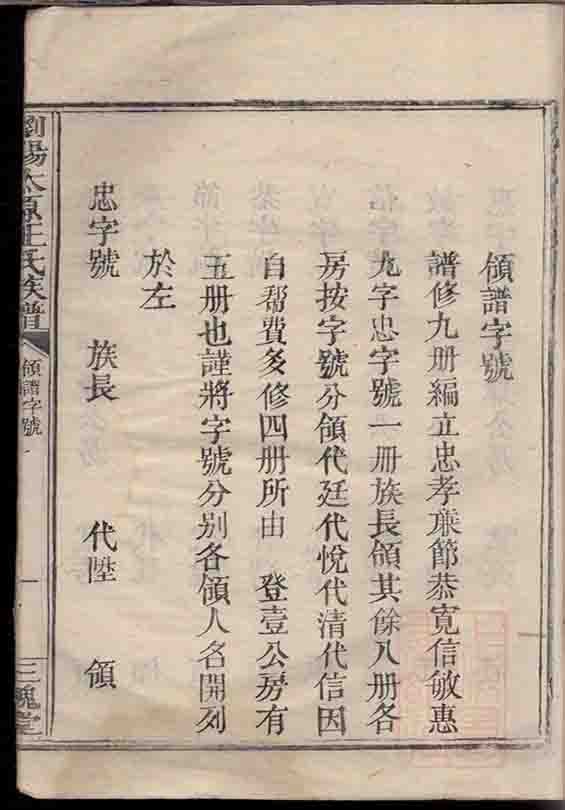 領譜字號
譜修九册編立忠孝亷節恭寬信敏惠
九字忠字號一册族長領其餘八册各
房按字號分領代廷代悅代清代信因
自帮費多修四册所由 登壹公房有
五册也謹將字號分别各領人名開列
於左
忠字號 族長 代陞 領
瀏陽太原王氏族譜 領譜字號 一 三槐堂